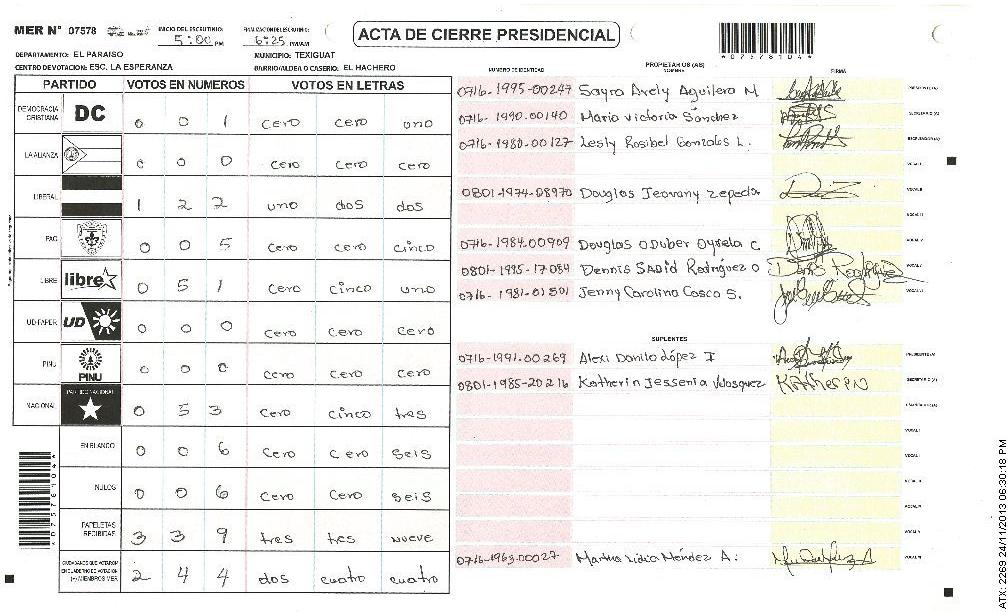 MER N° 07578
INICIO DEL ESCRUTINIO: 5:00 PM
FINALIZACION DEL ESCRUTINIO: 6:25 PM/AM
ACTA DE CIERRE PRESIDENCIAL
DEPARTAMENTO: EL PARAISO
MUNICIPIO: TEXIGUAT
CENTRO DE VOTACION: ESC. LA ESPERANZA
BARRIO/ALDEA O CASERIO: EL HACHERO
PARTIDO VOTOS EN NUMEROS VOTOS EN LETRAS
DEMOCRACIA CRISTIANA DC 0 0 1 cero cero uno
LA ALIANZA 0 0 0 cero cero cero
LIBERAL 1 2 2 uno dos dos
PAC 0 0 5 cero cero cinco
LIBRE libre 0 5 1 cero cinco uno
UD-FAPER UD 0 0 0 cero cero cero
PINU PINU 0 0 0 cero cero cero
NACIONAL PARTIDO NACIONAL 0 5 3 cero cinco tres
EN BLANCO 0 0 6 cero cero seis
NULOS 0 0 6 cero cero seis
PAPELETAS RECIBIDAS 3 3 9 tres tres nueve
CIUDADANOS QUE VOTARON EN CUADERNO DE VOTACION (+) MIEMBROS MER 2 4 4 dos cuatro cuatro
PROPIETARIOS (AS)
NUMERO DE IDENTIDAD NOMBRE FIRMA
0716-1995-00247 Sayra Arely Aguilera M PRESIDENTE(A)
0716-1990-00140 Maria Victoria Sánchez SECRETARIO(A)
0716-1980-00127 Lesly Rosibel Gonzales L. ESCRUTADOR(A)
VOCAL I
0801-1974-08970 Douglas Jeovany Zepeda
0716-1984-00909 Douglas Oduber Oyuela C.
0801-1995-17084 Dennis Sadid Rodriguez O
0716-1981-01501 Jenny Carolina Casco S.
SUPLENTES
0716-1991-00269 Alexi Danilo López I PRESIDENTE(A)
0801-1985-20216 Katherin Jessenia Velasquez SECRETARIO(A)
ESCRUTADOR(A)
VOCAL I
0716-1963-00027 Martha Lidia Méndez A.
07578104
07578104
ATX: 2269 24/11/2013 06:30:18 PM